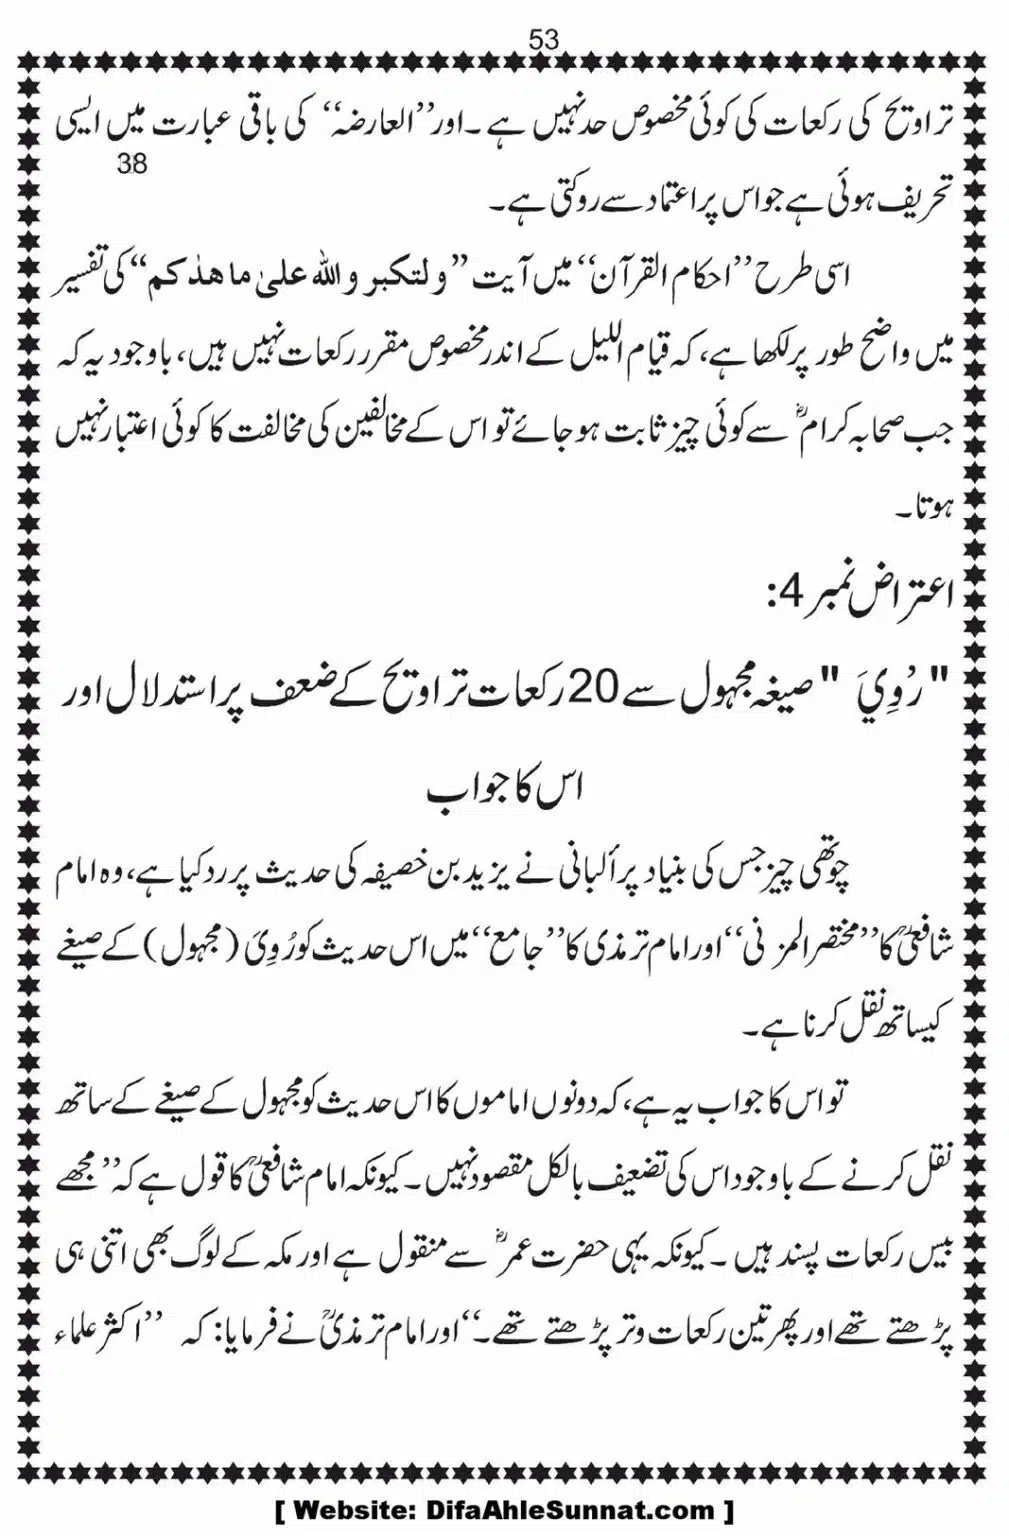 53
تراویح کی رکعات کی کوئی مخصوص حد نہیں ہے ۔اور’’العارضہ‘‘ کی باقی عبارت میں ایسی
38
تحریف ہوئی ہے جو اس پر اعتماد سے روکتی ہے۔
اسی طرح ’’احکام القرآن‘‘ میں آیت ”ولتکبر واللہ علیٰ ماھدٰکم“ کی تفسیر
میں واضح طور پر لکھا ہے، کہ قیام اللیل کے اندر مخصوص مقرر رکعات نہیں ہیں، باوجود یہ کہ
جب صحابہ کرامؓ سے کوئی چیز ثابت ہو جائے تو اس کے مخالفین کی مخالفت کا کوئی اعتبار نہیں
ہوتا۔
اعتراض نمبر 4:
"رُوِيَ " صیغہ مجہول سے 20 رکعات تراویح کے ضعف پر استدلال اور
اس کا جواب
چوتھی چیز جس کی بنیاد پر ألبانی نے یزید بن خصیفہ کی حدیث پر رد کیا ہے، وہ امام
شافعیؒ کا ’’مختصر المزنی‘‘ اور امام ترمذی کا ’’جامع‘‘ میں اس حدیث کو رُوِیَ (مجہول) کے صیغے
کیساتھ نقل کرنا ہے۔
تو اس کا جواب یہ ہے، کہ دونوں اماموں کا اس حدیث کو مجہول کے صیغے کے ساتھ
نقل کرنے کے باوجود اس کی تضعیف بالکل مقصود نہیں۔ کیونکہ امام شافعیؒ کا قول ہے کہ ’’مجھے
بیس رکعات پسند ہیں ۔کیونکہ یہی حضرت عمرؓ سے منقول ہے اور مکہ کے لوگ بھی اتنی ہی
پڑھتے تھے اور پھر تین رکعات وتر پڑھتے تھے۔‘‘ اور امام ترمذیؒ نے فرمایا: کہ ’’اکثر علماء
[ Website: DifaAhleSunnat.com ]